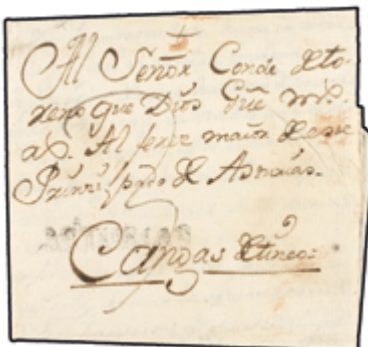 Al Señor Conde de to-
reno que Dios Gue ms.
as. Alferez maior de este
Prinzipado de Asturias.
Cangas de tineo.